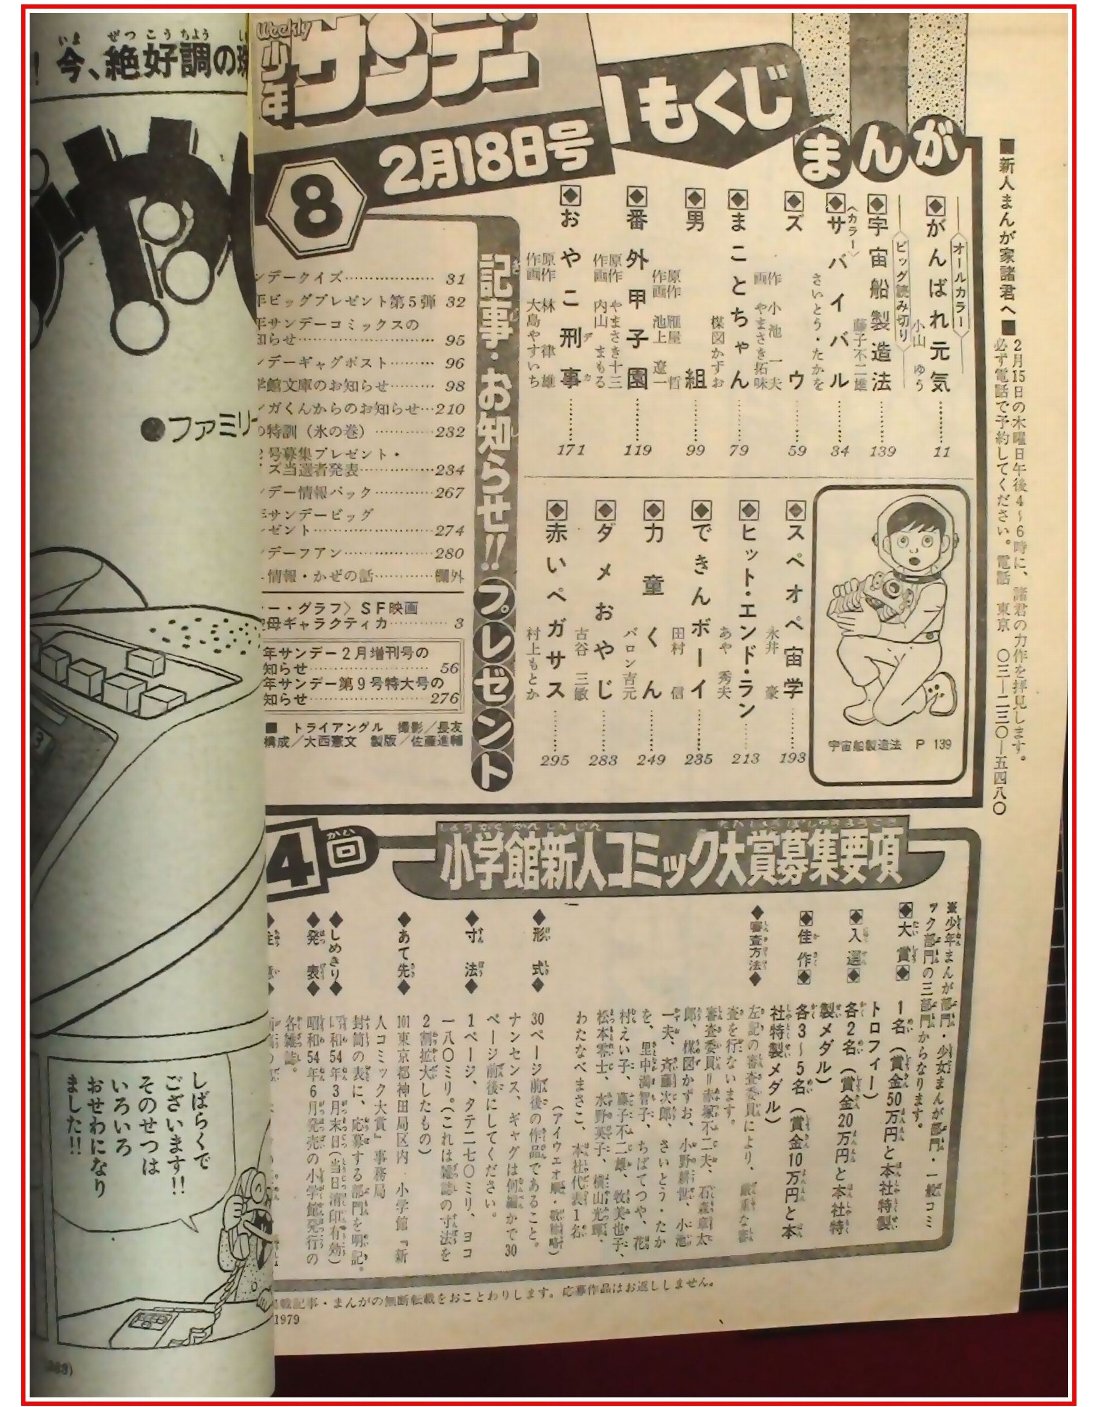 ！今、絶好調の
●ファミリー
しばらくで
ございます!!
そのせつは
いろいろ
おせわになり
ました!!
Weekly
少年サンデー
もくじ
2月18日号
8
まんが
オールカラー
◆がんばれ元気 小山ゆう 11
ビッグ読み切り
◆宇宙船製造法 藤子不二雄 139
〈カラー〉
◆サバイバル さいとう・たかを 34
◆ズウ 作 小池一夫 画 やまさき拓味 59
◆まことちゃん 楳図かずお 79
◆男組 原作 雁屋哲 作画 池上遼一 99
◆番外甲子園 原作 やまさき十三 作画 内山まもる 119
◆おやこ刑事 デカ 原作 林律雄 作画 大島やすいち 171
◆スペオペ宙学 永井豪 193
◆ヒット・エンド・ラン あや秀夫 213
◆できんボーイ 田村信 235
◆力童くん バロン吉元 249
◆ダメおやじ 古谷三敏 283
◆赤いペガサス 村上もとか 295
宇宙船製造法 P 139
記事・お知らせ!!プレゼント
ンデークイズ 31
年ビッグプレゼント第5弾 32
年サンデーコミックスの
知らせ 95
ンデーギャグポスト 96
学館文庫のお知らせ 98
ンガくんからのお知らせ 210
の特訓（氷の巻） 232
2号募集プレゼント・
ズ当選者発表 234
ンデー情報パック 267
年サンデービッグ
ゼント 274
ンデーフアン 280
情報・かぜの話 欄外
ー・グラフ〉SF映画
母ギャラクティカ 3
年サンデー2月増刊号の
知らせ 56
年サンデー第9号特大号の
知らせ 276
■ トライアングル 撮影／長友
構成／大西憲文 製版／佐藤進輔
■新人まんが家諸君へ■2月15日の木曜日午後4～6時に、諸君の力作を拝見します。
必ず電話で予約してください。電話 東京 〇三―二三〇―五四八〇
4回
小学館新人コミック大賞募集要項
※少年まんが部門 少女まんが部門・一般コミ
ック部門の三部門からなります。
◆大賞◆ 1名（賞金50万円と本社特製
トロフィー）
◆入選◆ 各2名（賞金20万円と本社特
製メダル）
◆佳作◆ 各3～5名（賞金10万円と本
社特製メダル）
◆審査方法◆ 左記の審査委員により、厳重な審
査を行ないます。
審査委員＝赤塚不二夫、石森章太
郎、楳図かずお、小野耕世、小池
一夫、斉藤次郎、さいとう・たか
を、里中満智子、ちばてつや、花
村えい子、藤子不二雄、牧美也子、
松本零士、水野英子、横山光輝、
わたなべまさこ、本社代表1名
（アイウエオ順・敬称略）
◆形式◆ 30ページ前後の作品であること。
ナンセンス、ギャグは何編かで30
ページ前後にしてください。
◆寸法◆ 1ページ、タテ二七〇ミリ、ヨコ
一八〇ミリ。（これは雑誌の寸法を
2割拡大したもの）
◆あて先◆ 101東京都神田局区内 小学館『新
人コミック大賞』事務局
封筒の表に、応募する部門を明記。
◆しめきり◆ 昭和54年3月末日（当日消印有効）
◆発表◆ 昭和54年6月発売の小学館発行の
各雑誌。
載記事・まんがの無断転載をおことわりします。応募作品はお返ししません。
1979